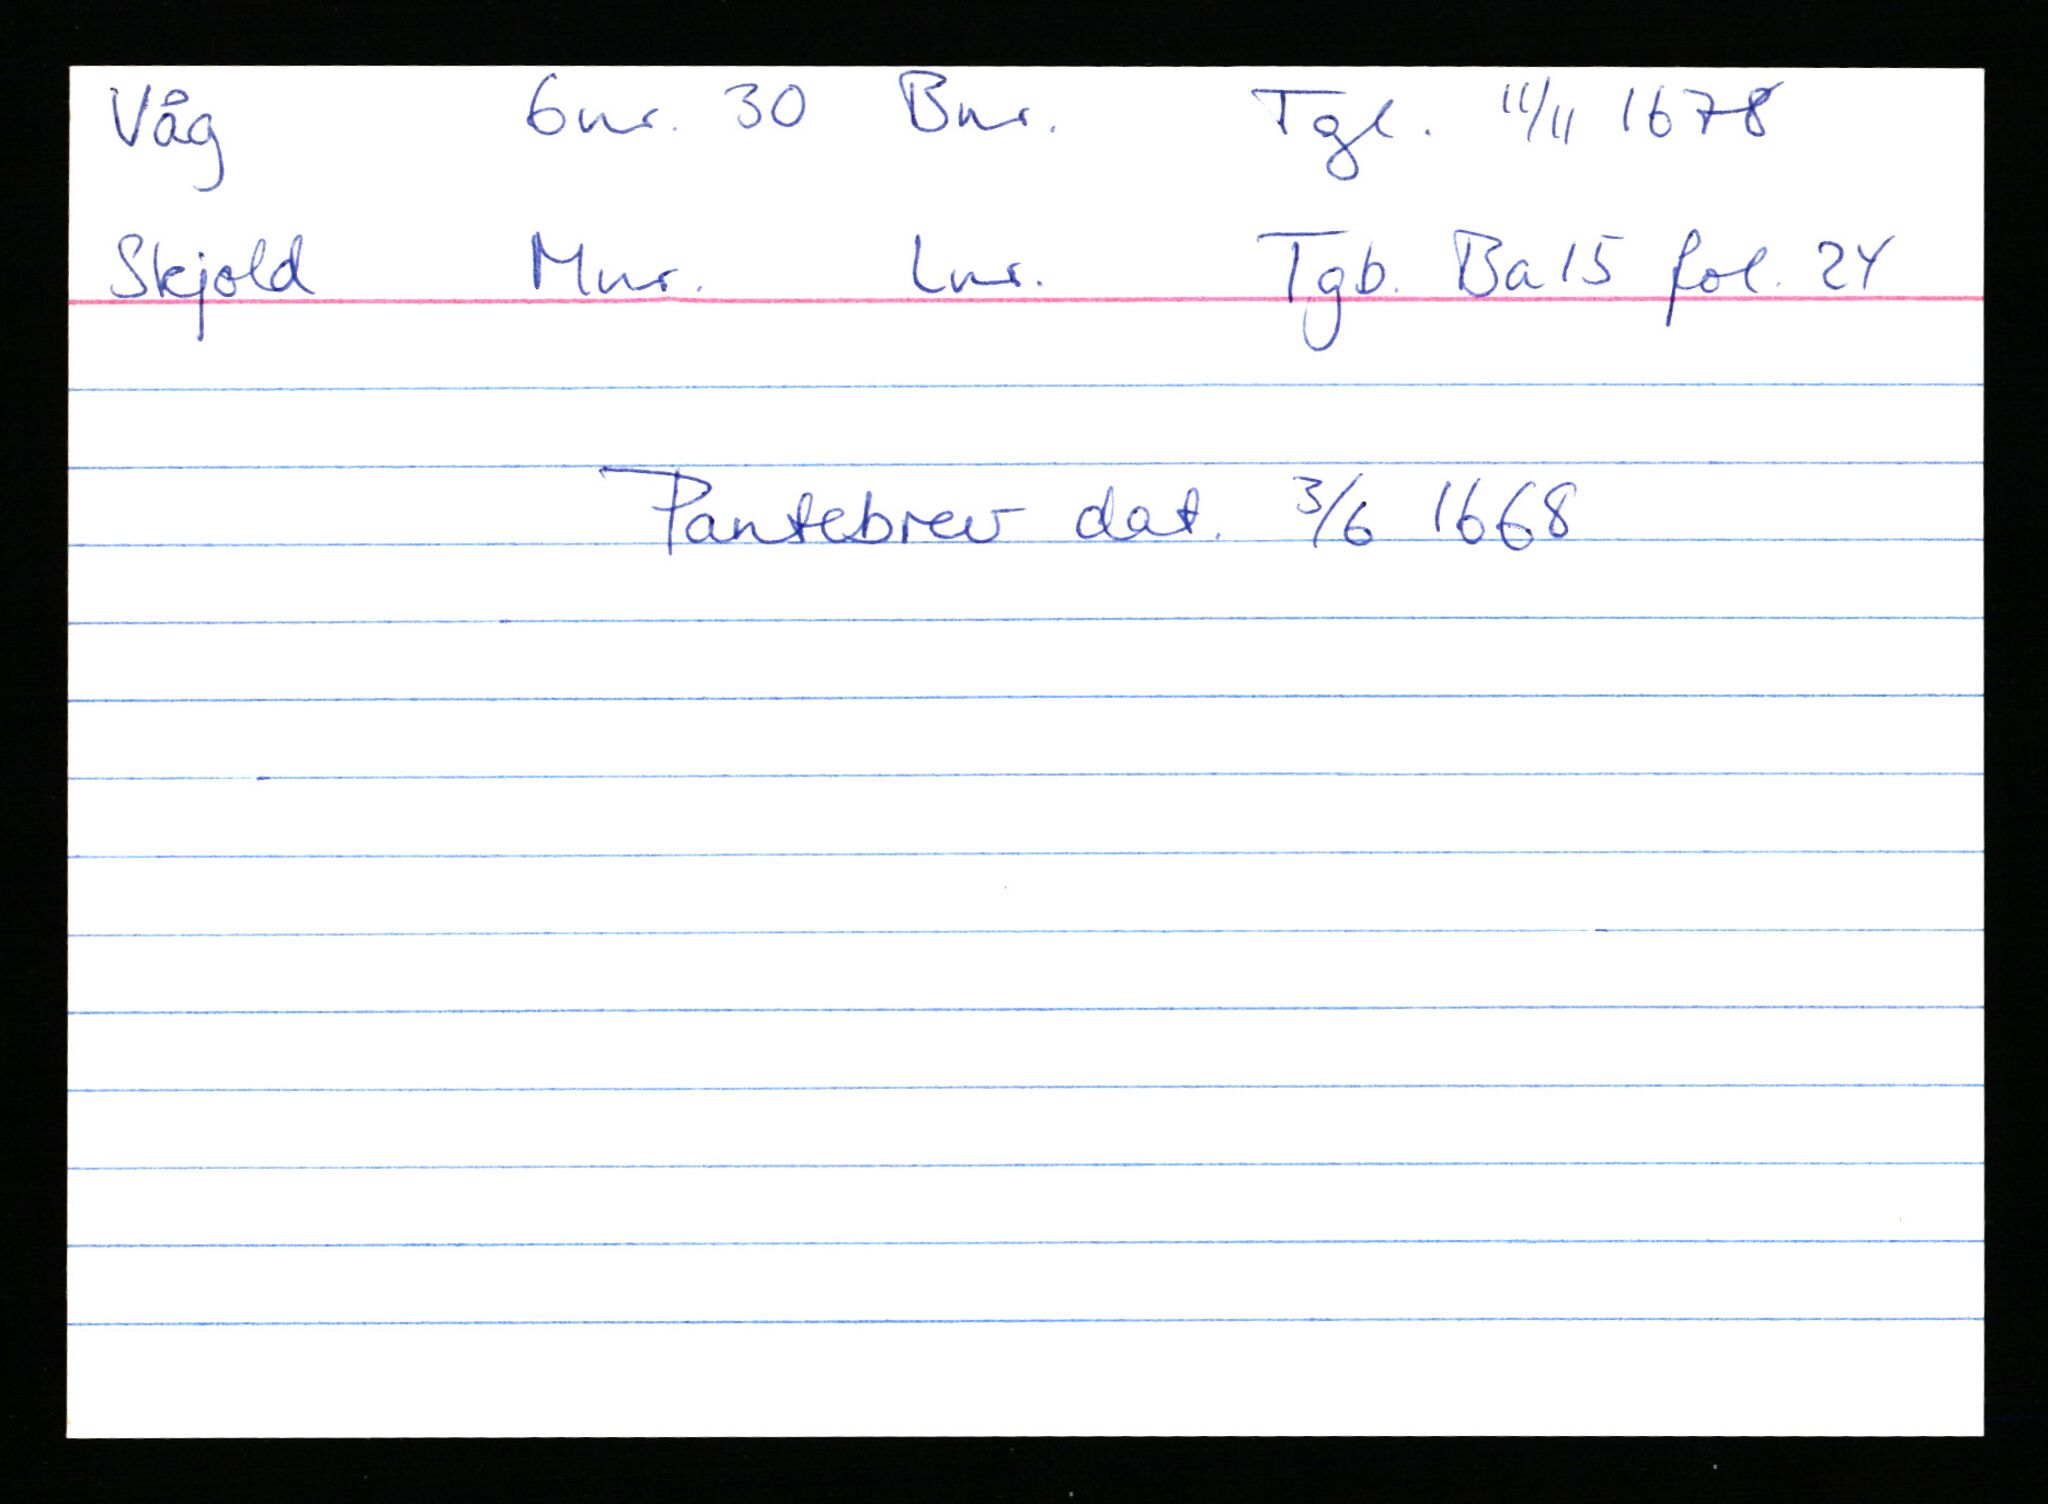 Våg Gnr. 30 Bnr. Tgl. 11/11 1678
Skjold Mnr. Lnr. Tgb. Ba 15 fol. 24
Pantebrev dat. 3/6 1668